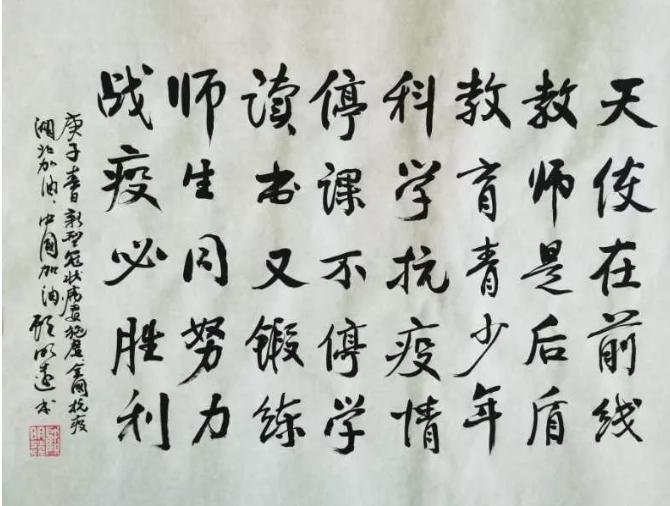 天使在前线
教师是后盾
教育青少年
科学抗疫情
停课不停学
读书又锻练
师生同努力
战疫必胜利
庚子春新型冠状病毒施虐全国抗疫
湖北加油中国加油顾明远书